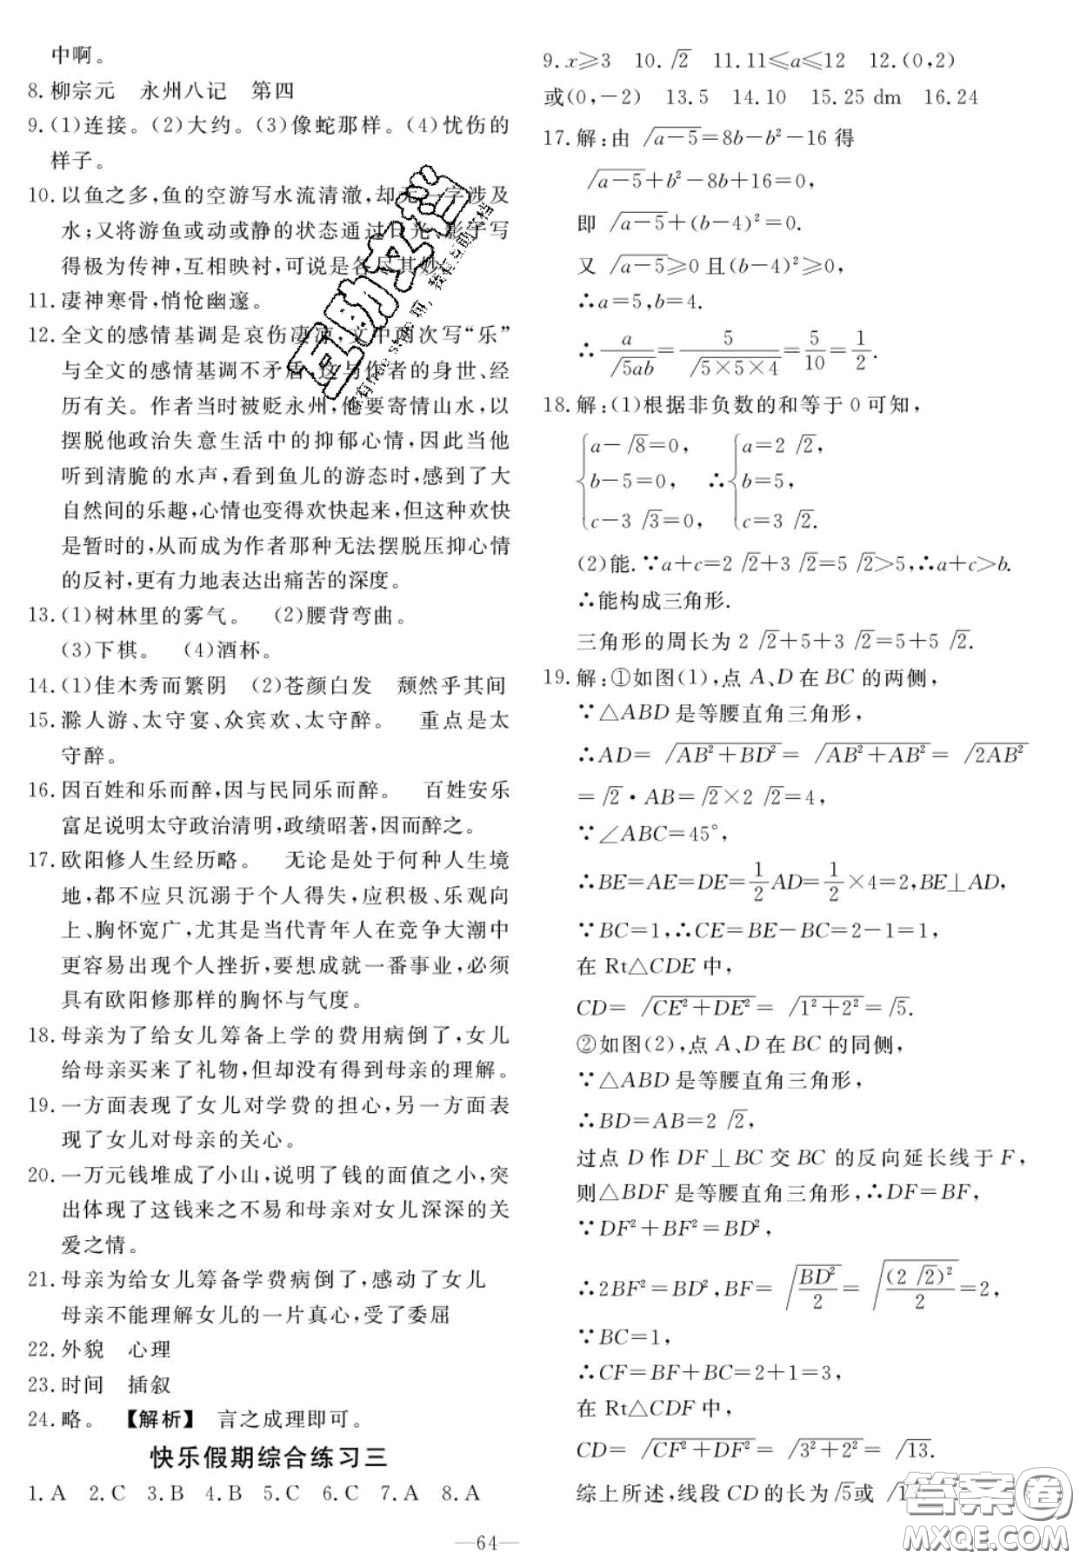 中啊。
8.柳宗元　永州八记　第四
9.(1)连接。(2)大约。(3)像蛇那样。(4)忧伤的
样子。
10.以鱼之多,鱼的空游写水流清澈,却无一字涉及
水;又将游鱼或动或静的状态通过日光、影子写
得极为传神,互相映衬,可说是各尽其妙。
11.凄神寒骨,悄怆幽邃。
12.全文的感情基调是哀伤凄凉,文中两次写“乐”
与全文的感情基调不矛盾,这与作者的身世、经
历有关。作者当时被贬永州,他要寄情山水,以
摆脱他政治失意生活中的抑郁心情,因此当他
听到清脆的水声,看到鱼儿的游态时,感到了大
自然间的乐趣,心情也变得欢快起来,但这种欢快
是暂时的,从而成为作者那种无法摆脱压抑心情
的反衬,更有力地表达出痛苦的深度。
13.(1)树林里的雾气。　(2)腰背弯曲。
(3)下棋。　(4)酒杯。
14.(1)佳木秀而繁阴　(2)苍颜白发　颓然乎其间
15.滁人游、太守宴、众宾欢、太守醉。　重点是太
守醉。
16.因百姓和乐而醉,因与民同乐而醉。　百姓安乐
富足说明太守政治清明,政绩昭著,因而醉之。
17.欧阳修人生经历略。　无论是处于何种人生境
地,都不应只沉溺于个人得失,应积极、乐观向
上、胸怀宽广,尤其是当代青年人在竞争大潮中
更容易出现个人挫折,要想成就一番事业,必须
具有欧阳修那样的胸怀与气度。
18.母亲为了给女儿筹备上学的费用病倒了,女儿
给母亲买来了礼物,但却没有得到母亲的理解。
19.一方面表现了女儿对学费的担心,另一方面表
现了女儿对母亲的关心。
20.一万元钱堆成了小山,说明了钱的面值之小,突
出体现了这钱来之不易和母亲对女儿深深的关
爱之情。
21.母亲为给女儿筹备学费病倒了,感动了女儿
母亲不能理解女儿的一片真心,受了委屈
22.外貌　心理
23.时间　插叙
24.略。【解析】　言之成理即可。
快乐假期综合练习三
1.A　2.C　3.B　4.B　5.C　6.C　7.A　8.A
9.x≥3　10.√2　11.11≤a≤12　12.(0,2)
或(0,-2)　13.5　14.10　15.25 dm　16.24
17.解:由 √(a-5)=8b-b²-16 得
√(a-5)+b²-8b+16=0,
即 √(a-5)+(b-4)²=0.
又 √(a-5)≥0 且(b-4)²≥0,
∴a=5,b=4.
∴a/√(5ab)=5/√(5×5×4)=5/10=1/2.
18.解:(1)根据非负数的和等于 0 可知,
{a-√8=0,　{a=2√2,
b-5=0,　∴b=5,
c-3√3=0,　c=3√2.
(2)能.∵a+c=2√2+3√2=5√2>5,∴a+c>b.
∴能构成三角形.
三角形的周长为 2√2+5+3√2=5+5√2.
19.解:①如图(1),点 A、D 在 BC 的两侧,
∵△ABD 是等腰直角三角形,
∴AD=√(AB²+BD²)=√(AB²+AB²)=√(2AB²)
=√2·AB=√2×2√2=4,
∵∠ABC=45°,
∴BE=AE=DE=1/2AD=1/2×4=2,BE⊥AD,
∵BC=1,∴CE=BE-BC=2-1=1,
在 Rt△CDE 中,
CD=√(CE²+DE²)=√(1²+2²)=√5.
②如图(2),点 A、D 在 BC 的同侧,
∵△ABD 是等腰直角三角形,
∴BD=AB=2√2,
过点 D 作 DF⊥BC 交 BC 的反向延长线于 F,
则△BDF 是等腰直角三角形,∴DF=BF,
∵DF²+BF²=BD²,
∴2BF²=BD²,BF=√(BD²/2)=√((2√2)²/2)=2,
∵BC=1,
∴CF=BF+BC=2+1=3,
在 Rt△CDF 中,
CD=√(CF²+DF²)=√(3²+2²)=√13.
综上所述,线段 CD 的长为 √5或√13.
—64—
互助文档
答案圈
MXQE.COM